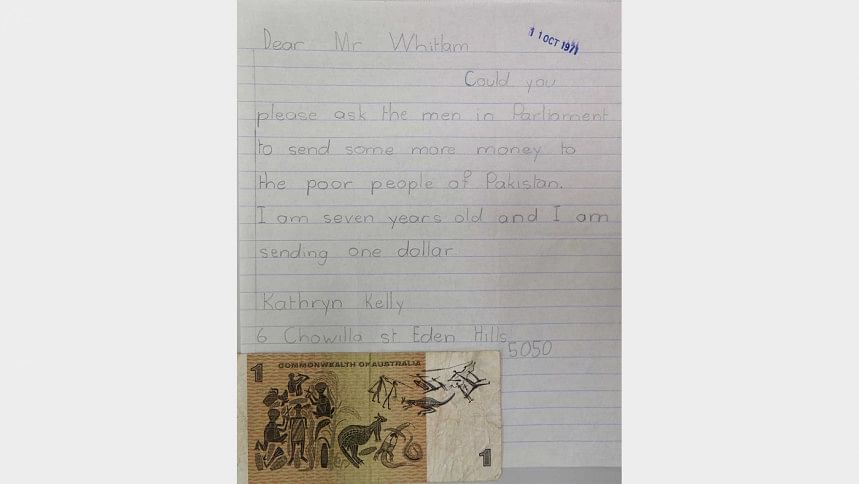 Dear Mr Whitlam
11 OCT 1971
Could you
please ask the men in Parliament
to send some more money to
the poor people of Pakistan.
I am seven years old and I am
sending one dollar.
Kathryn Kelly
6 Chowilla st Eden Hills
5050
1 COMMONWEALTH OF AUSTRALIA
1